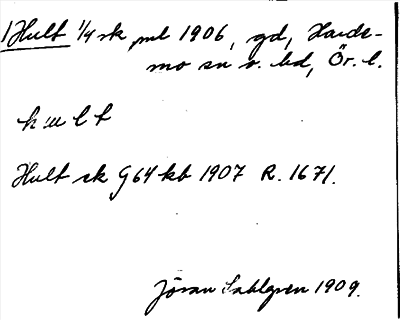 1 Hult 1/4 sk, ml 1906, gd, Harde-
mo sn o. hd, Ör. l.
Hult sk G64 kb 1907 R. 1671.
Jöran Sahlgren 1909.